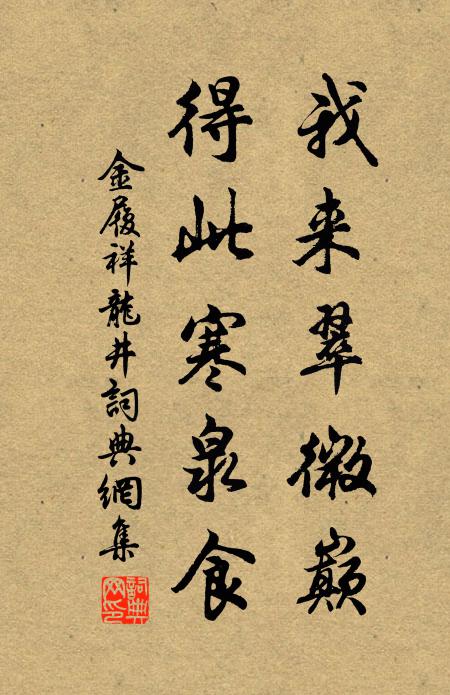 我来翠微巅
得此寒泉食
金履祥龍井詞典網集
詞典
网印